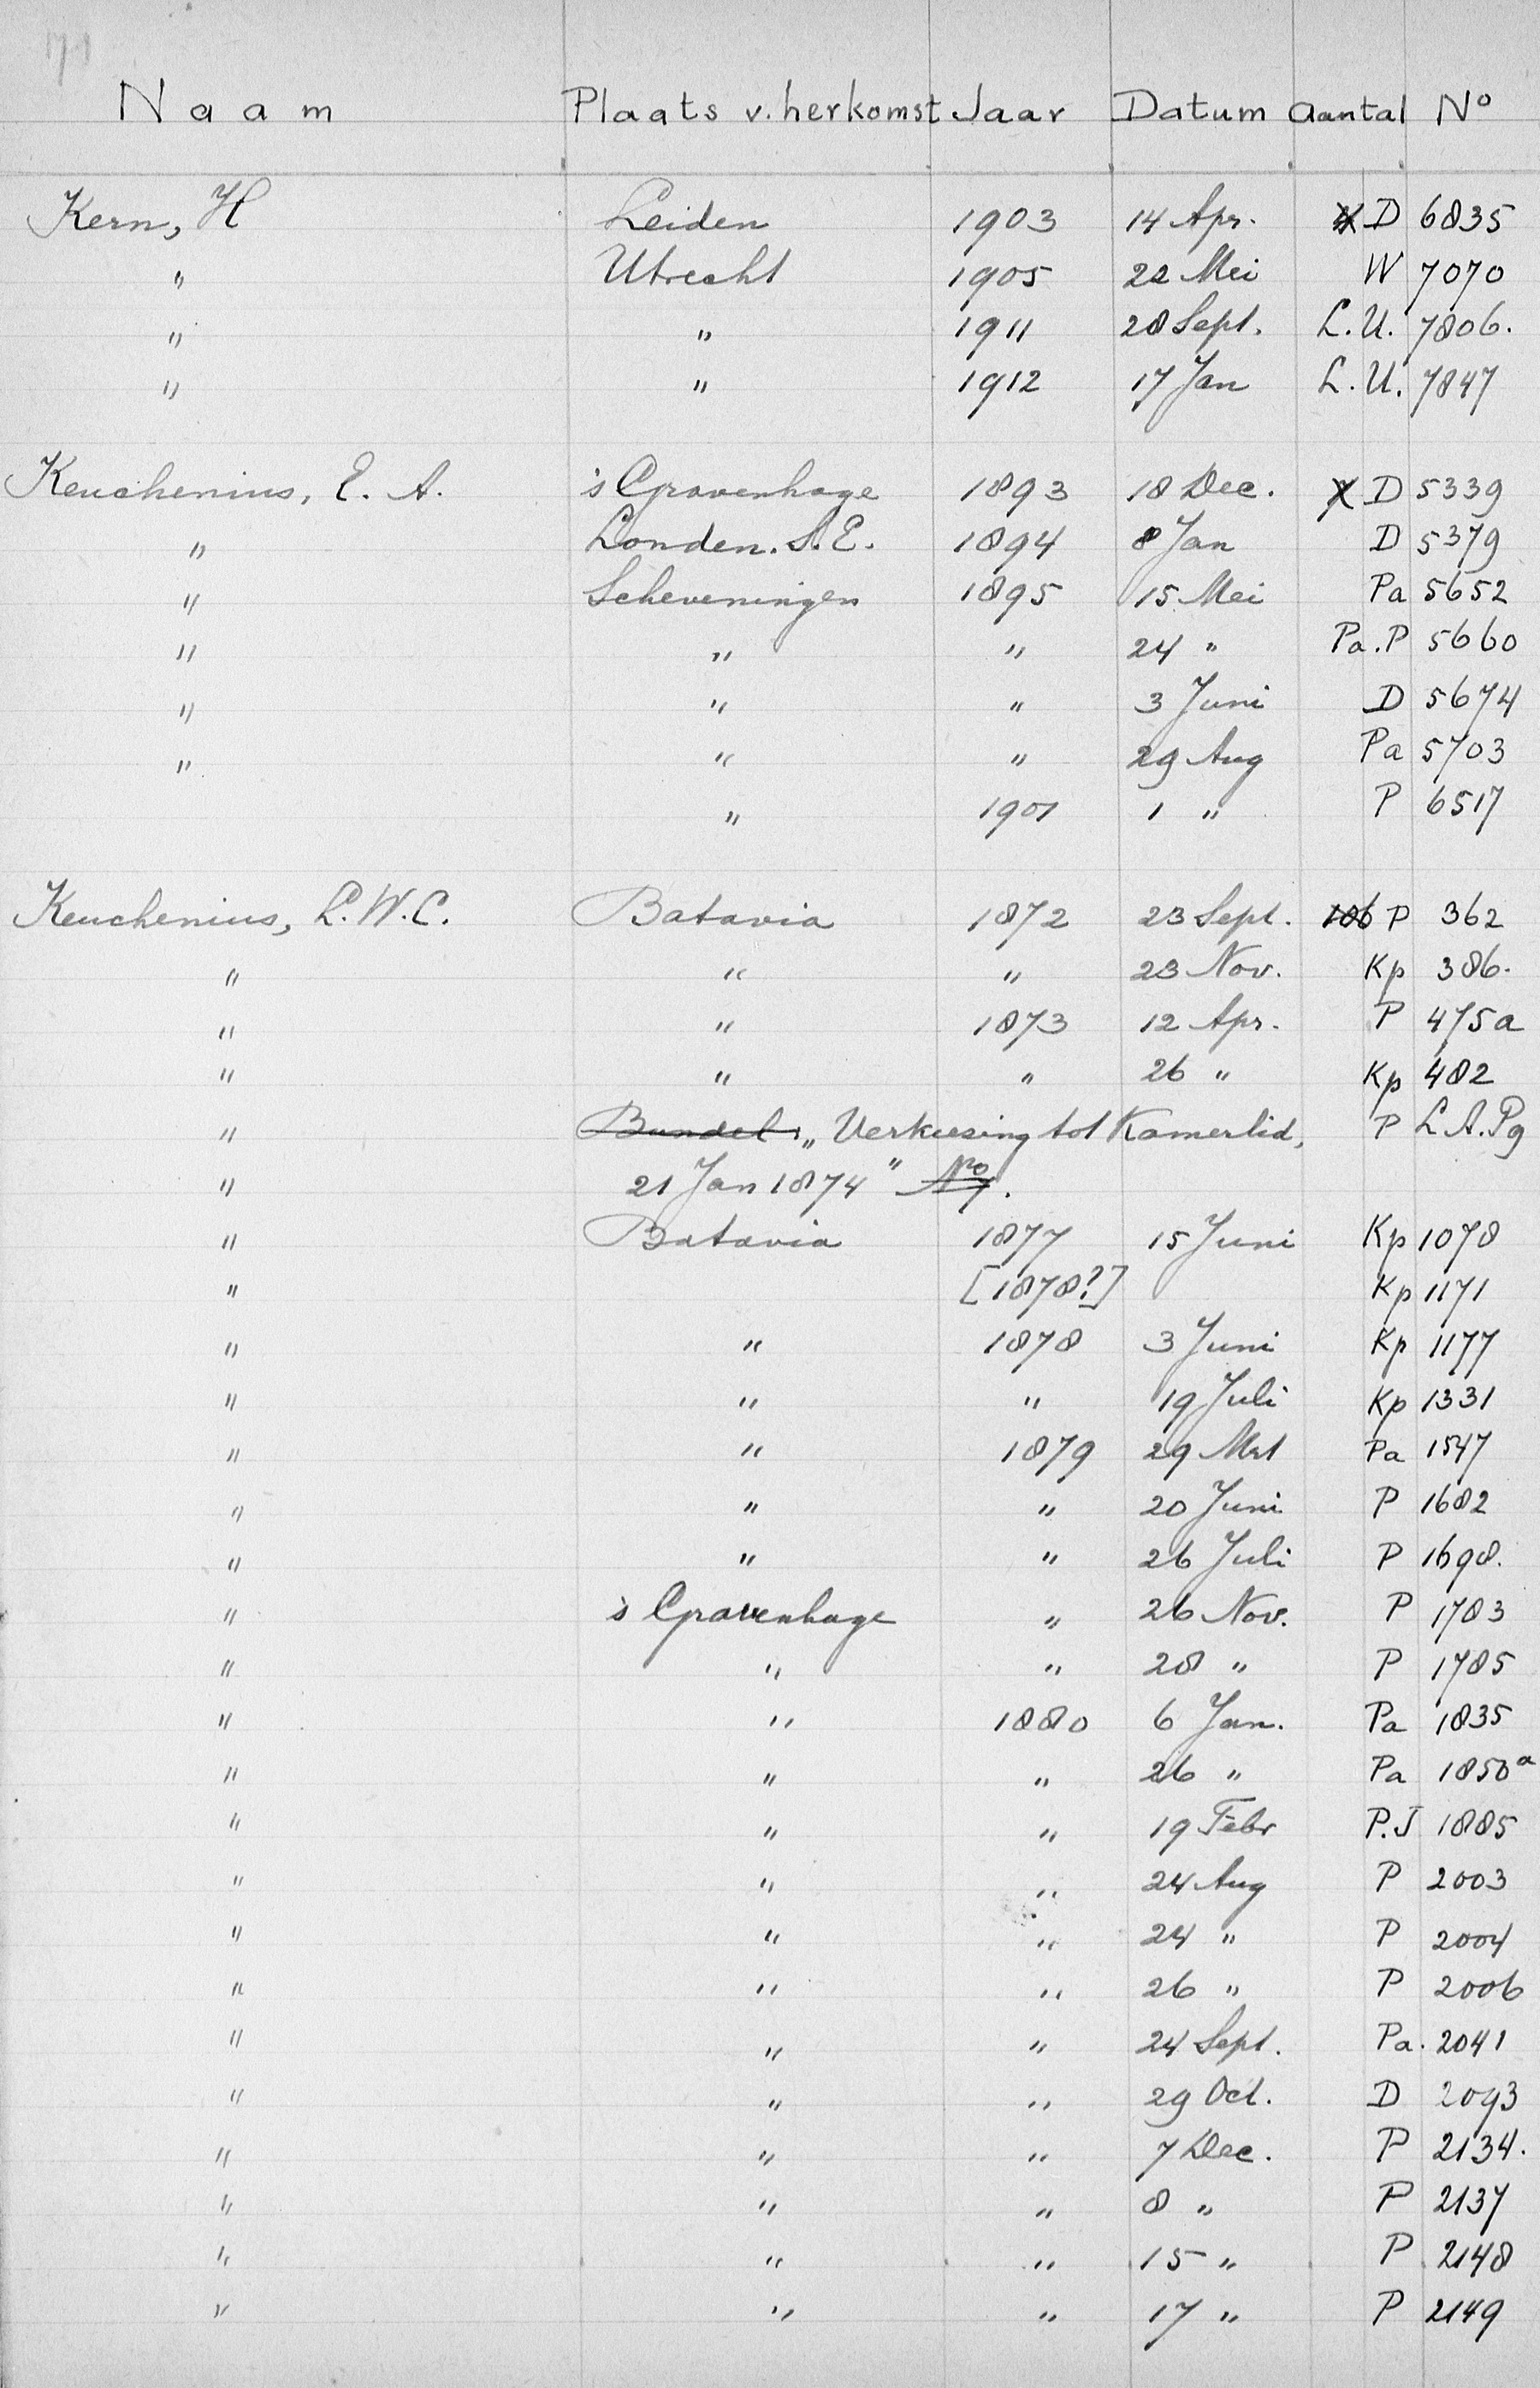 171
Naam Plaats v. herkomst Jaar Datum Aantal No
Kern, H Leiden 1903 14 Apr. D 6835
" Utrecht 1905 22 Mei W 7070
" " 1911 28 Sept. L.U. 7806.
" " 1912 17 Jan L.U. 7847
Keuchenius, E. A. 's Gravenhage 1893 18 Dec. D 5339
" Londen. S.E. 1894 8 Jan D 5379
" Scheveningen 1895 15 Mei Pa 5652
" " " 24 " Pa.P 5660
" " " 3 Juni D 5674
" " " 29 Aug Pa 5703
" 1901 1 " P 6517
Keuchenius, L.W.C. Batavia 1872 23 Sept. 106 P 362
" " " 23 Nov. Kp 386.
" " 1873 12 Apr. P 475a
" " " 26 " Kp 482
" Bundel „Verkiesing tot Kamerlid, P L.A.Pg
" 21 Jan 1874" No 7.
" Batavia 1877 15 Juni Kp 1078
" [1878?] Kp 1171
" " 1878 3 Juni Kp 1177
" " " 19 Juli Kp 1331
" " 1879 29 Mrt Pa 1547
" " " 20 Juni P 1682
" " " 26 Juli P 1698.
" 's Gravenhage " 26 Nov. P 1783
" " " 28 " P 1785
" " 1880 6 Jan. Pa 1835
" " " 26 " Pa 1850a
" " " 19 Febr P.J 1885
" " " 24 Aug P 2003
" " " 24 " P 2004
" " " 26 " P 2006
" " " 24 Sept. Pa. 2041
" " " 29 Oct. D 2093
" " " 7 Dec. P 2134.
" " " 8 " P 2137
" " " 15 " P 2148
" " " 17 " P 2149